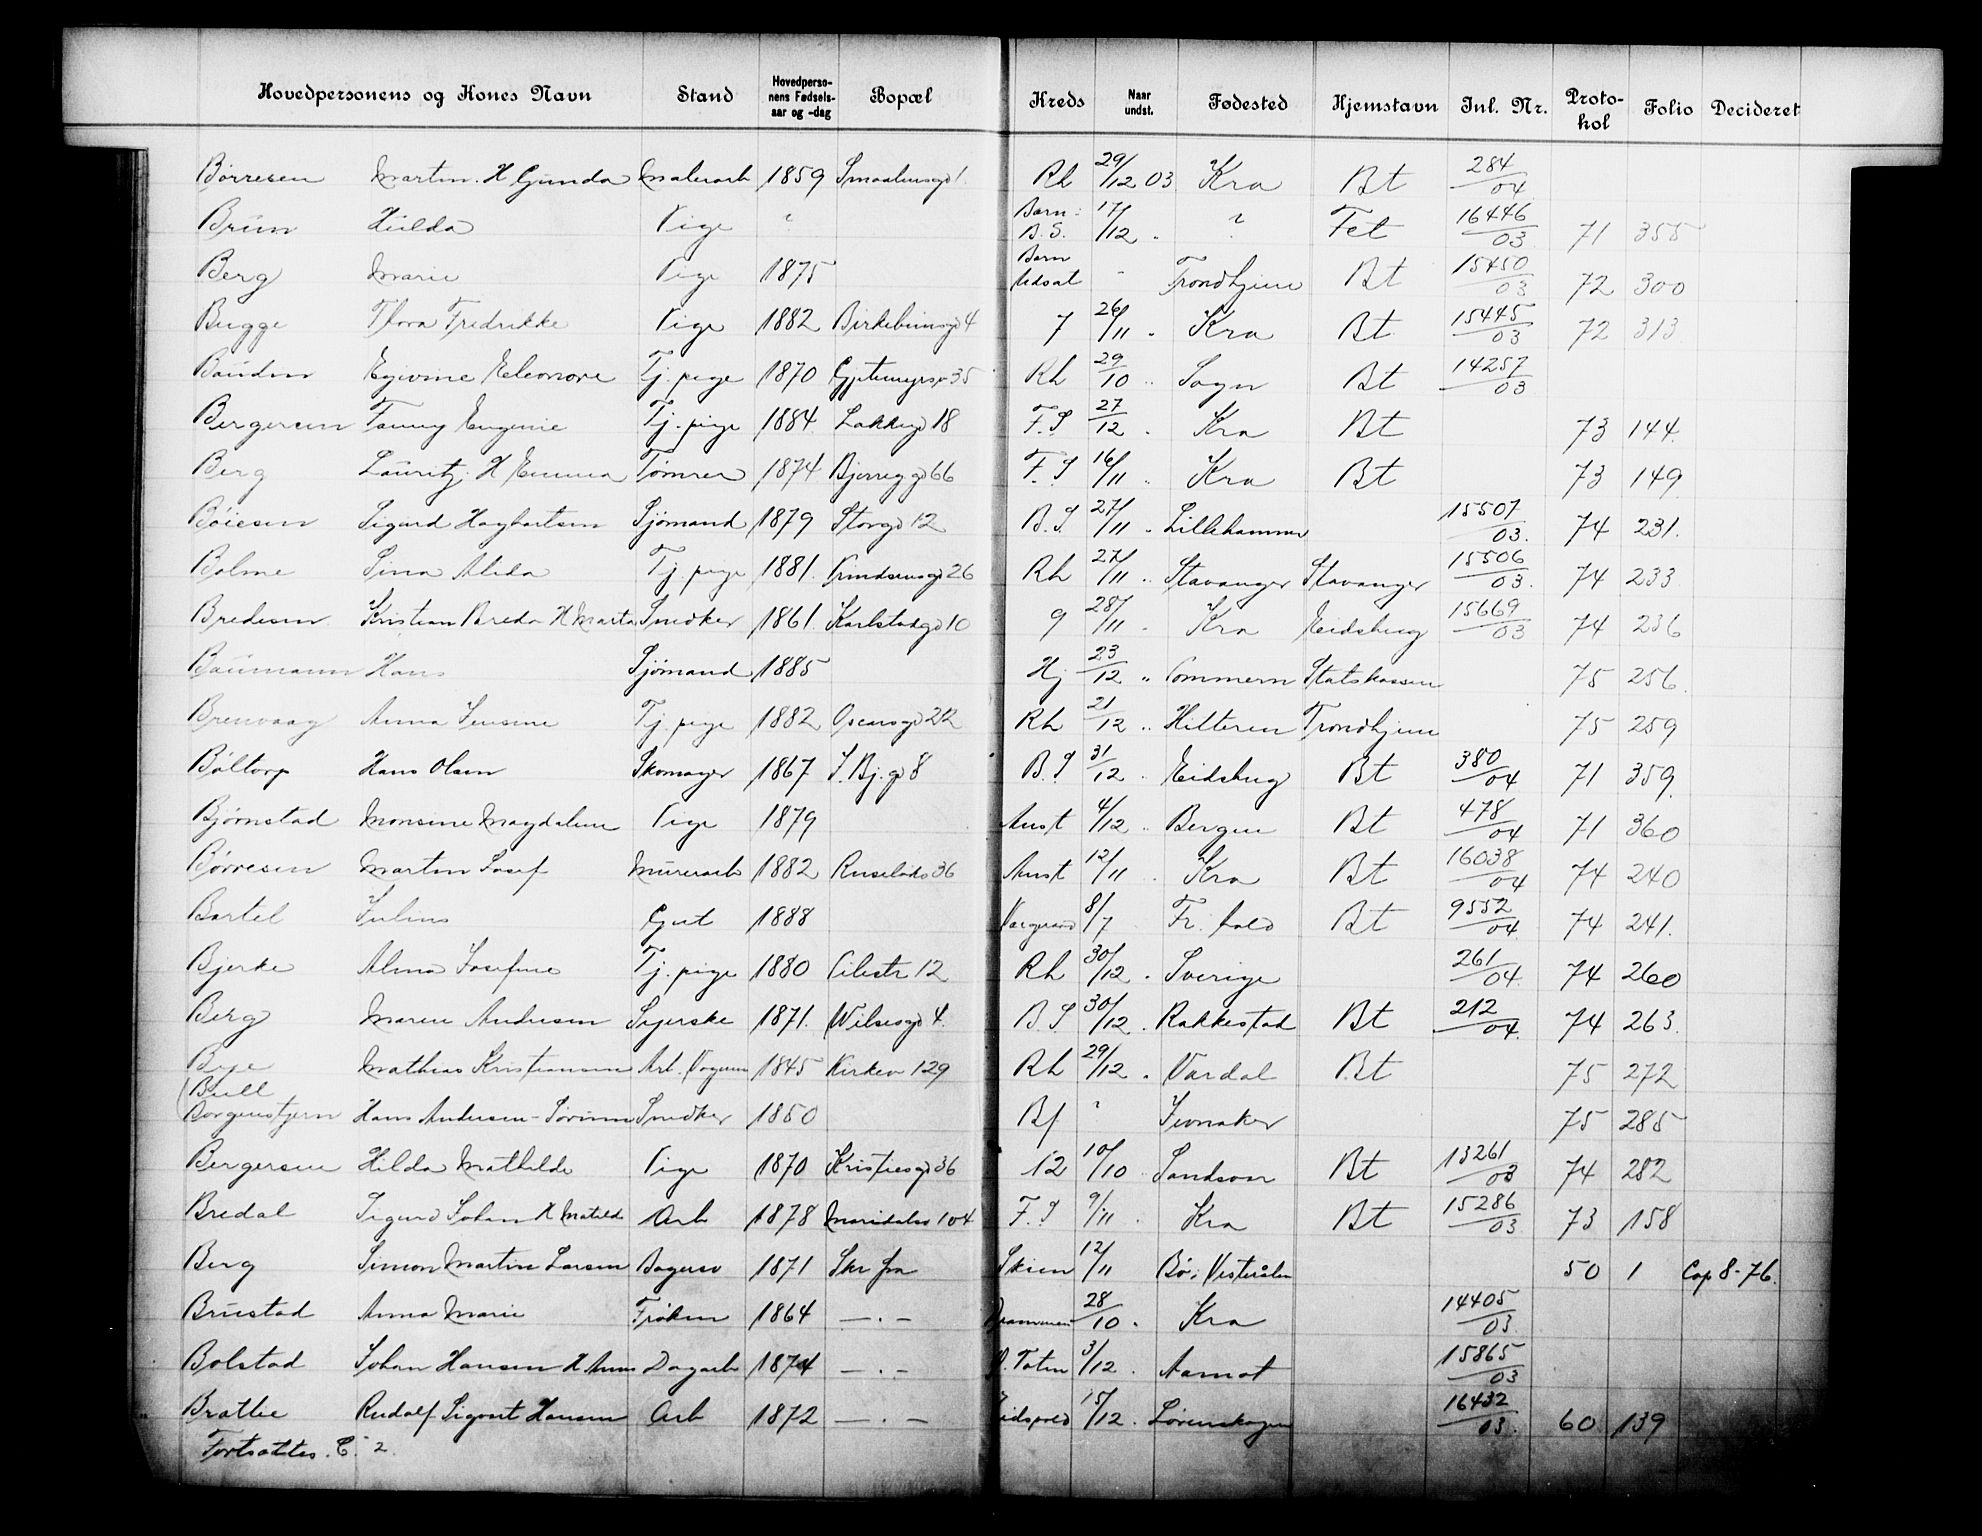 Hovedpersonens og Kones Navn Stand Hovedperso-nens Fødsels-aar og -dag Bopæl Kreds Naar undst. Fødested Hjemstavn Inl. Nr. Proto-kol Folio Decideret
Børresen Martin. H Gunda Malerarb 1859 Smaalensgd 1. Rh 29/12 03 Kra Bt 284/04
Brun Hulda Pige ? Barn: B.S. 17/12 " ? Fet 16446/03 71 355
Berg Marie Pige 1875 Barn Udsat " Trondhjem Bt 15450/03 72 300
Bugge Thora Fredrikke Pige 1882 Birkebeinsgd 4 7 26/11 " Kra Bt 15445/03 72 313
Eleonore Tj. pige 1870 35 Rh 29/10 " Sogn Bt 14257/03
Bergersen Fanny Eugenie Tj. pige 1884 Lakkegd 18 F.S 27/12 " Kra Bt 73 144.
Berg Lauritz. H Emma Tømrer 1874 66 F.S 16/11 " Kra Bt 73 149
Böiesen Sigurd Hagbartsen Sjömand 1879 Storgd 12 B.S 27/11 " Lillehammer 15507/03. 74 231.
Bolme Sina Alida Tj. pige 1881. 26 Rh 27/11 " Stavanger Stavanger 15506/03. 74 233
Bredesen Kristian Breda H Marta Snedker 1861. Karlstadgd 10 9 28/11 " Kra Eidsberg 15669/03 74 236
Baumann Hans Sjömand 1885 Hj 23/12 " Pommern Statskassen 75 256.
Brenvaag Anna Jensine Tj. pige 1882 Oscarsgd 22 Rh 21/12 " Hitteren Trondhjem 75 259
Böltorp Hans Olsen Skomager 1867 S. Bj. gd 8 B.S 31/12 " Eidsberg Bt 380/04 71 359.
Bjørnstad Monsine Magdalene Pige 1879 Anst 4/12 " Bergen Bt 478/04 71 360
Børresen Martin Josef Murerarb 1882 Ruseløkv 36 Anst 12/11 " Kra Bt 16038/04 74 240
Bartel Julius Gut 1888 8/7 Fr. hald Bt 9552/04 74 241.
Bjerke Alma Josefine Tj. pige 1880 Pilestr 12 Rh 30/12 " Sverige 261/04 74 260
Berg Maren Andresen Syerske 1871. Wilsesgd 4. B.S 30/12 " Rakkestad Bt 212/04. 74 263.
Bye Mathias Kristiansen Arb. Vognm 1845 Kirkev 129 Rh 29/12 " Vardal Bt 75 272
(Bull
Borgenstjern Hans Andersen - Snedker 1850 Bf " Jevnaker 75 285
Bergersen Hilda Mathilde Pige 1870 Kristiesgd 36 12 10/10 " Bt 13261/03 74 282
Bredal Sigurd Johan H Matild Arb 1878 Maridalsv 104 F.S 9/11 " Kra Bt 15286/03 73 158
Berg Simon Martin Larsen Bagersv 1871 Skr fra Skien 12/11 Bø i Vesterålen 50 1 Cop 8-76.
Brustad Anna Marie Frøken 1864 — . — Drammen 28/10 " Kra 14405/03
Bolstad Johan Hansen H Anna Dagarb 1874 — . — Ø. Toten 3/12 " Aamot 15865/03
Bratlie Rudolf Sigvart Hansen Arb 1872 — . — Eidsvold 15/12 " Lørenskogen 16432/03. 60 139
Fortsættes. C. 2.